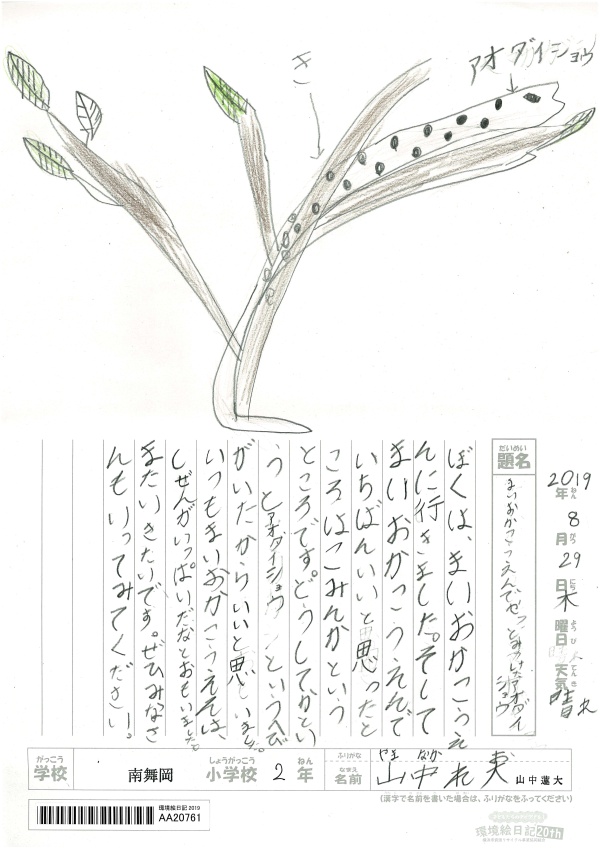 アオダイショウ
き
2019年ねん
8月がつ
29日にち
木曜日ようび
天気てんき 晴れ
だいめい
題名
まいおかこうえんでやっとみつけたアオダイショウ
ぼくは、まいおかこうえ
んに行きました。そして
まいおかこうえんで
いちばんいいと思ったと
ころはこみんかという
ところです。どうしてかとい
うとアオダイショウというへび
がいたからいいと思いました。
いつもまいおかこうえんは、
しぜんがいっぱいだなとおもいました。
またいきたいです。ぜひみなさ
んもいってみてください。
がっこう しょうがっこう ねん ふりがな やま なか
学校 南舞岡 小学校 2年 なまえ 名前 山中 れ大 山中蓮大
(漢字で名前を書いた場合は、ふりがなをふってください)
環境絵日記2019
AA20761
環境絵日記20th